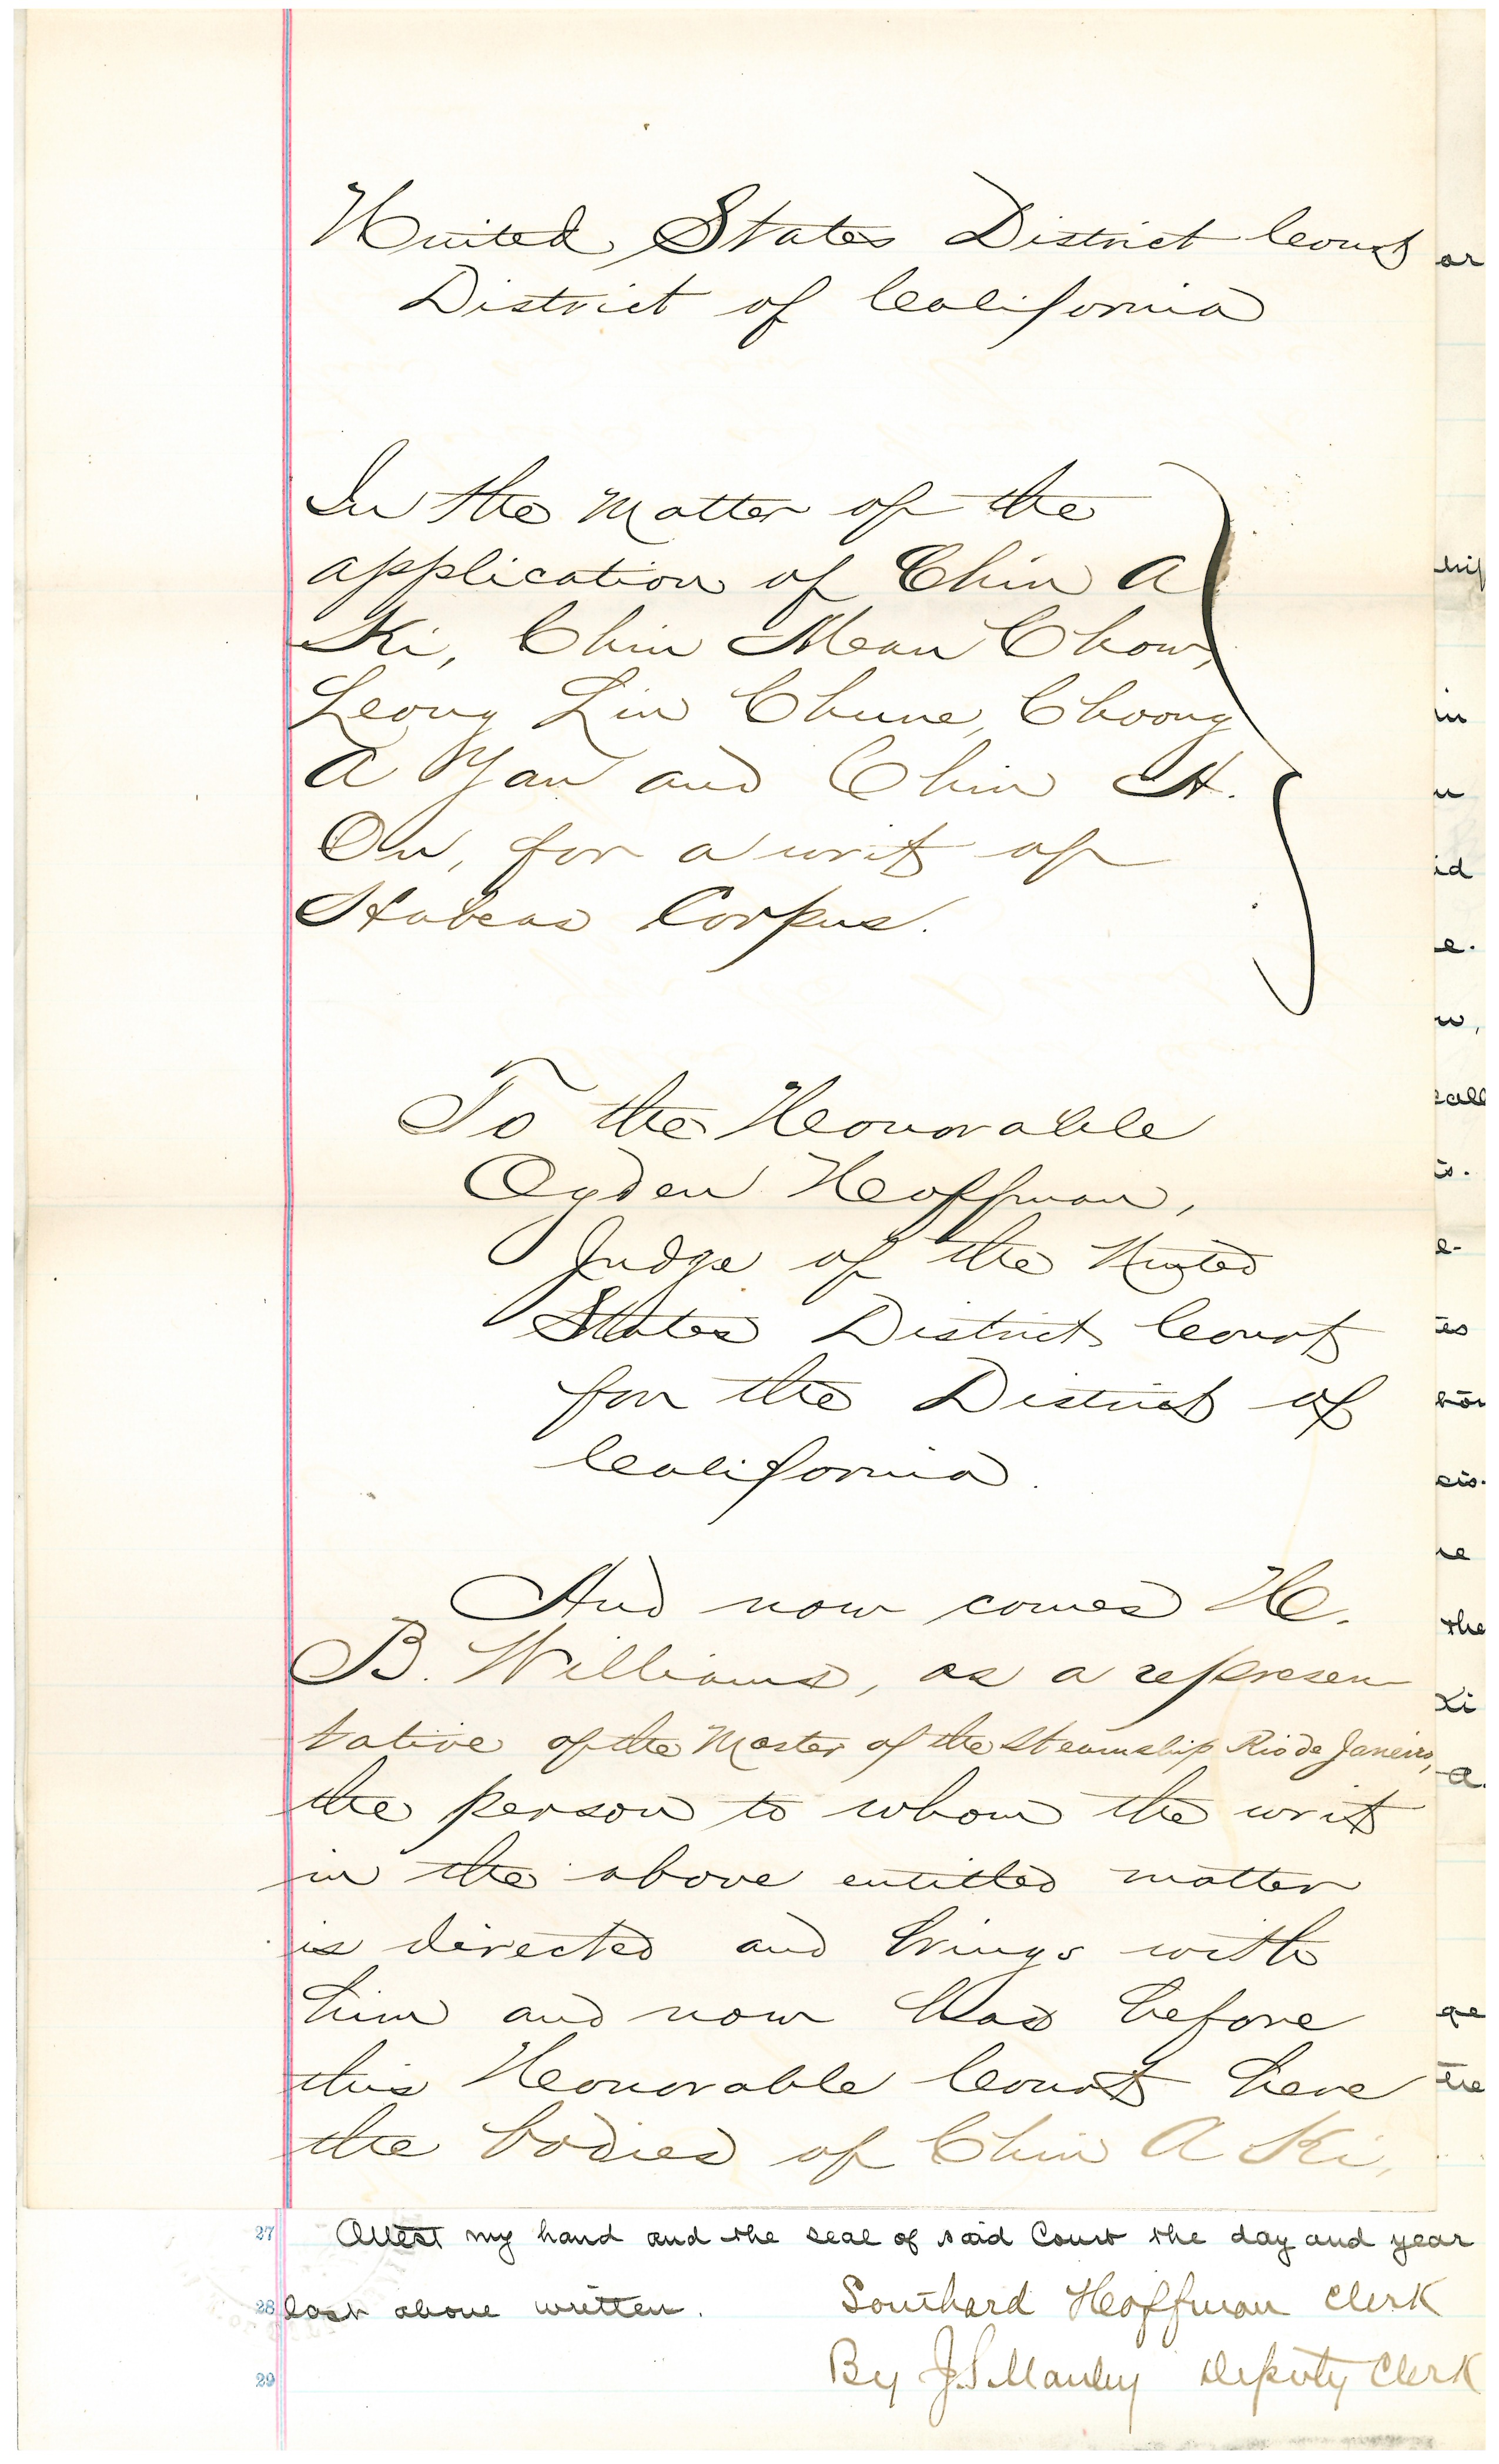 United States District Court
District of California
In the Matter of the
application of Chin A
Ki, Chin Mean Chow,
Leong Lin Chune, Choong
A Yan and Chin A.
On, for a writ of
Habeas Corpus.
To the Honorable
Ogden Hoffman,
Judge of the United
States District Court
for the District of
California.
And now comes H.
B. Williams, as a represen
tative of the Master of the Steamship Rio de Janeiro,
the person to whom the writ
in the above entitled matter
is directed and brings with
him and now has before
this Honorable Court here
the bodies of Chin A Ki,
27 Attest my hand and the seal of said Court the day and year
28 last above written. Southard Hoffman Clerk
29 By J. S. Manley Deputy Clerk